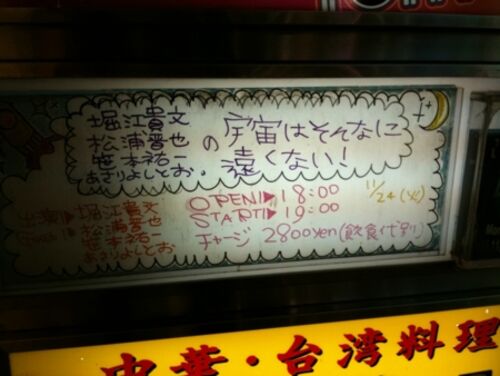 堀江貴文
松浦晋也
笹本祐一
あさりよしとお.
の
宇宙はそんなに
遠くない!
OPEN!▶18:00
START!▶19:00
チャージ 2800yen(飲食代別)
11/24(火)
出演▶堀江貴文
松浦晋也
笹本祐一
あさりよしとお
中華・台湾料理